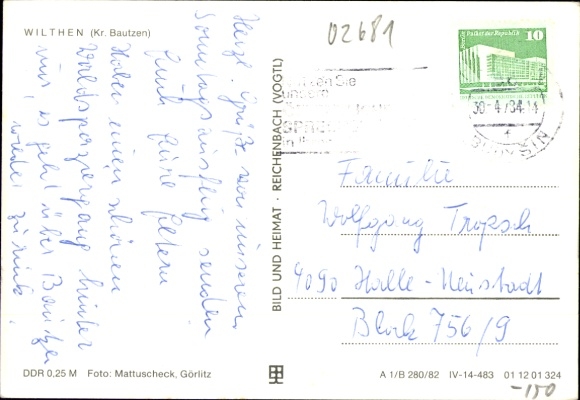 WILTHEN (Kr. Bautzen)
02681
Herzl. Grüße von unserem
Sonntagsausflug senden
Euch Eure Eltern
Haben einen schönen
Waldspaziergang hinter
uns, es geht über Bautzen
wieder zurück.
BILD UND HEIMAT · REICHENBACH (VOGTL)
Palast der Republik
10
30-4-84-14
Familie
Wolfgang Tropsch
4090 Halle-Neustadt
Block 756/9
DDR 0,25 M Foto: Mattuscheck, Görlitz
A 1/B 280/82 IV-14-483 01 12 01 324
-150